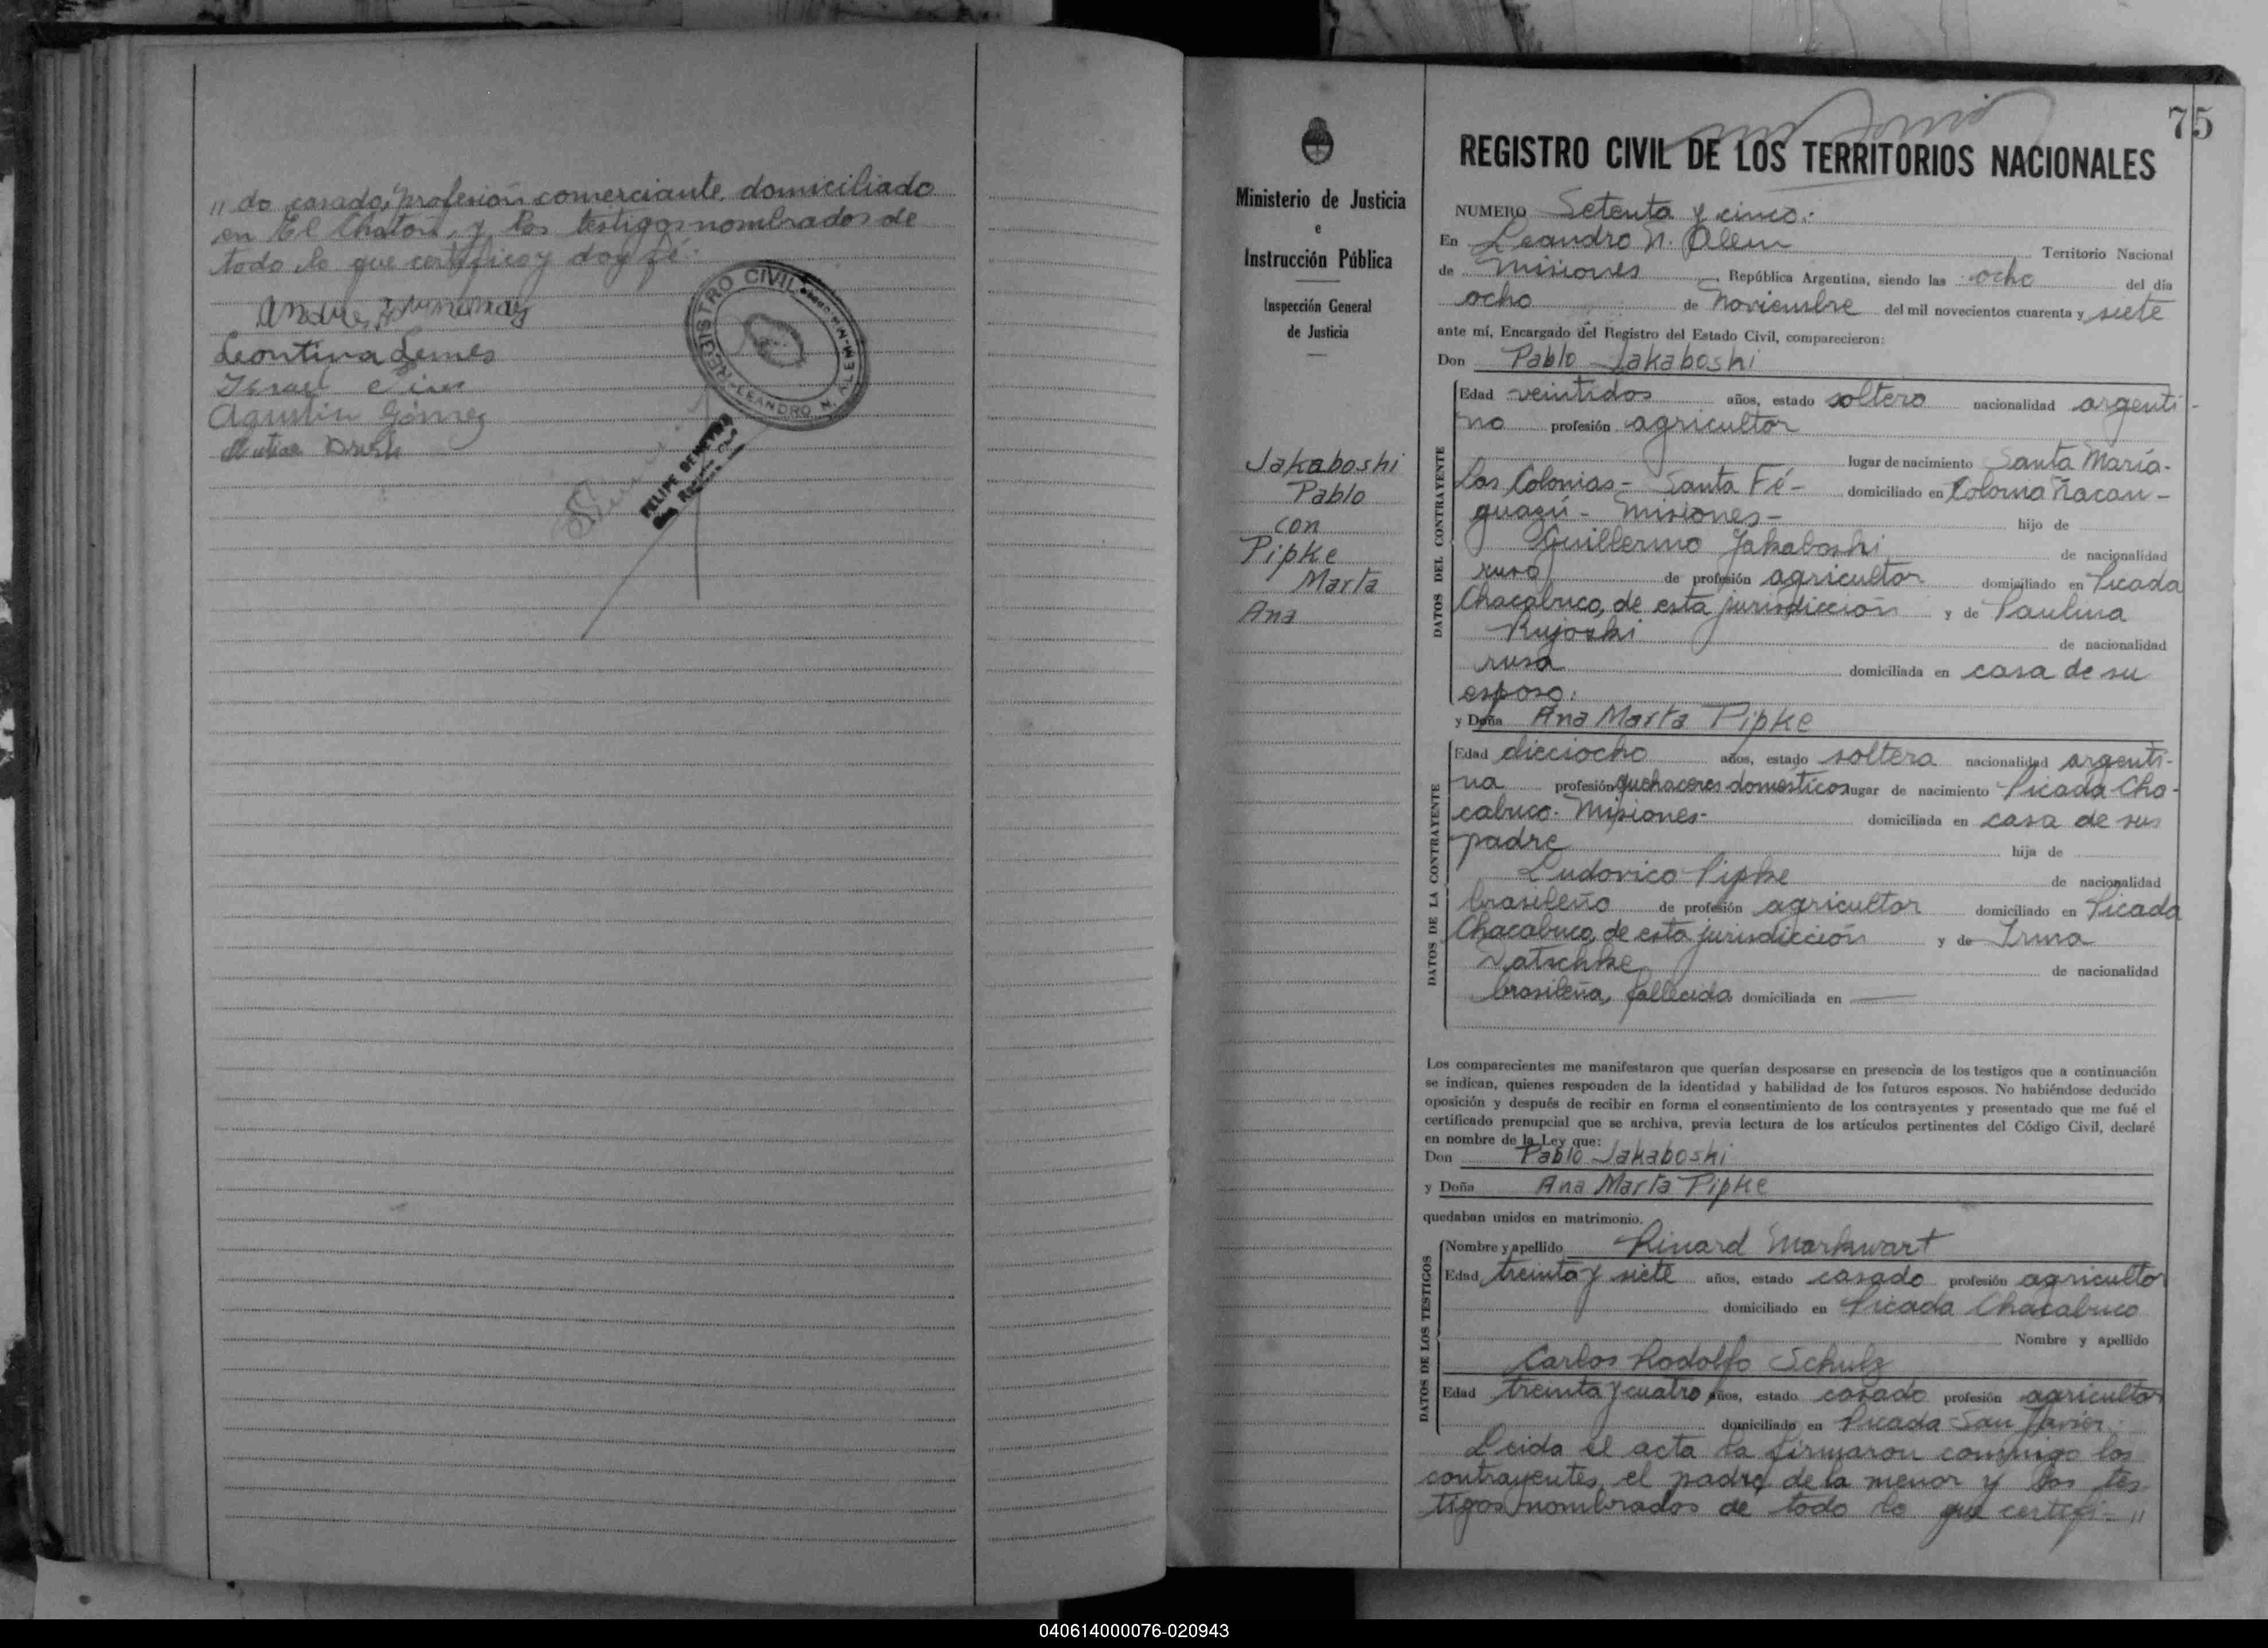 " do casado, profesión comerciante, domiciliado
en El Chatón, y los testigos nombrados de
todo lo que certifico y doy fé.-
Leontina Lemes
Israel
Agustín Gómez
REGISTRO CIVIL
LEANDRO N. ALEM-M
FELIPE
75
REGISTRO CIVIL DE LOS TERRITORIOS NACIONALES
Ministerio de Justicia
e
Instrucción Pública
Inspección General
de Justicia
Jakaboshi
Pablo
con
Pipke
Marta
Ana
NUMERO Setenta y cinco.-
En Leandro N. Alem Territorio Nacional
de Misiones República Argentina, siendo las ocho del día
ocho de Noviembre del mil novecientos cuarenta y siete
ante mí, Encargado del Registro del Estado Civil, comparecieron:
Don Pablo Jakaboshi
DATOS DEL CONTRAYENTE
Edad veintidos años, estado soltero nacionalidad argenti-
no profesión agricultor
lugar de nacimiento Santa María-
Las Colonias- Santa Fé- domiciliado en Colonia Ñacan-
guazú- Misiones- hijo de
Guillermo Jakaboshi de nacionalidad
ruso de profesión agricultor domiciliado en Picada
Chacabuco, de esta jurisdicción y de Paulina
Rujoski de nacionalidad
rusa domiciliada en casa de su
esposo.
y Doña Ana Marta Pipke
DATOS DE LA CONTRAYENTE
Edad dieciocho años, estado soltera nacionalidad argenti-
na profesión quehaceres domésticos lugar de nacimiento Picada Cha-
cabuco- Misiones- domiciliada en casa de sus
padre hija de
Ludovico Pipke de nacionalidad
brasileño de profesión agricultor domiciliado en Picada
Chacabuco, de esta jurisdicción y de Irma
Datschke de nacionalidad
brasileña, fallecida domiciliada en —
Los comparecientes me manifestaron que querían desposarse en presencia de los testigos que a continuación
se indican, quienes responden de la identidad y habilidad de los futuros esposos. No habiéndose deducido
oposición y después de recibir en forma el consentimiento de los contrayentes y presentado que me fué el
certificado prenupcial que se archiva, previa lectura de los artículos pertinentes del Código Civil, declaré
en nombre de la Ley que:
Don Pablo Jakaboshi
y Doña Ana Marta Pipke
quedaban unidos en matrimonio.
DATOS DE LOS TESTIGOS
Nombre y apellido Rinard Markwart
Edad treinta y siete años, estado casado profesión agricultor
domiciliado en Picada Chacabuco
Nombre y apellido
Carlos Rodolfo Schulz
Edad treinta y cuatro años, estado casado profesión agricultor
domiciliado en Picada San Javier.
Leida el acta la firmaron conmigo los
contrayentes, el padre de la menor y los tes-
tigos nombrados de todo lo que certifi- "
040614000076-020943